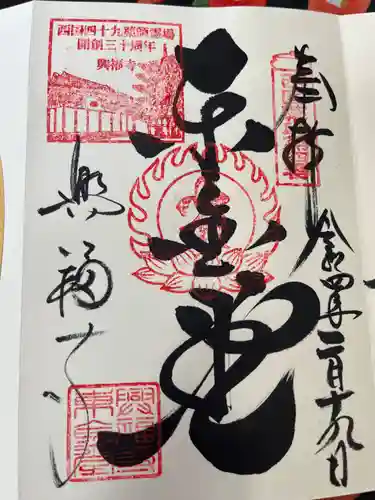 奉拝
令和四年二月十九日
東金堂
西国四十九薬師霊場
開創三十周年
興福寺
興福寺
興福
東金堂